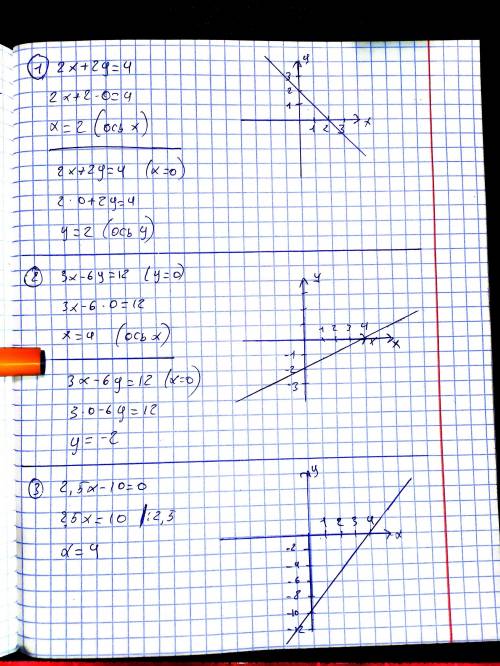 ① 2x+2y=4
2x+2·0=4
x=2 (ось x)
2x+2y=4 (x=0)
2·0+2y=4
y=2 (ось y)
y
3
2
1
1 2 3 x
② 3x-6y=12 (y=0)
3x-6·0=12
x=4 (ось x)
3x-6y=12 (x=0)
3·0-6y=12
y=-2
y
1 2 3 4
x x
-1
-2
-3
③ 2,5x-10=0
2,5x=10 /:2,5
x=4
y
1 2 3 4 x
-2
-4
-6
-8
-10
-12